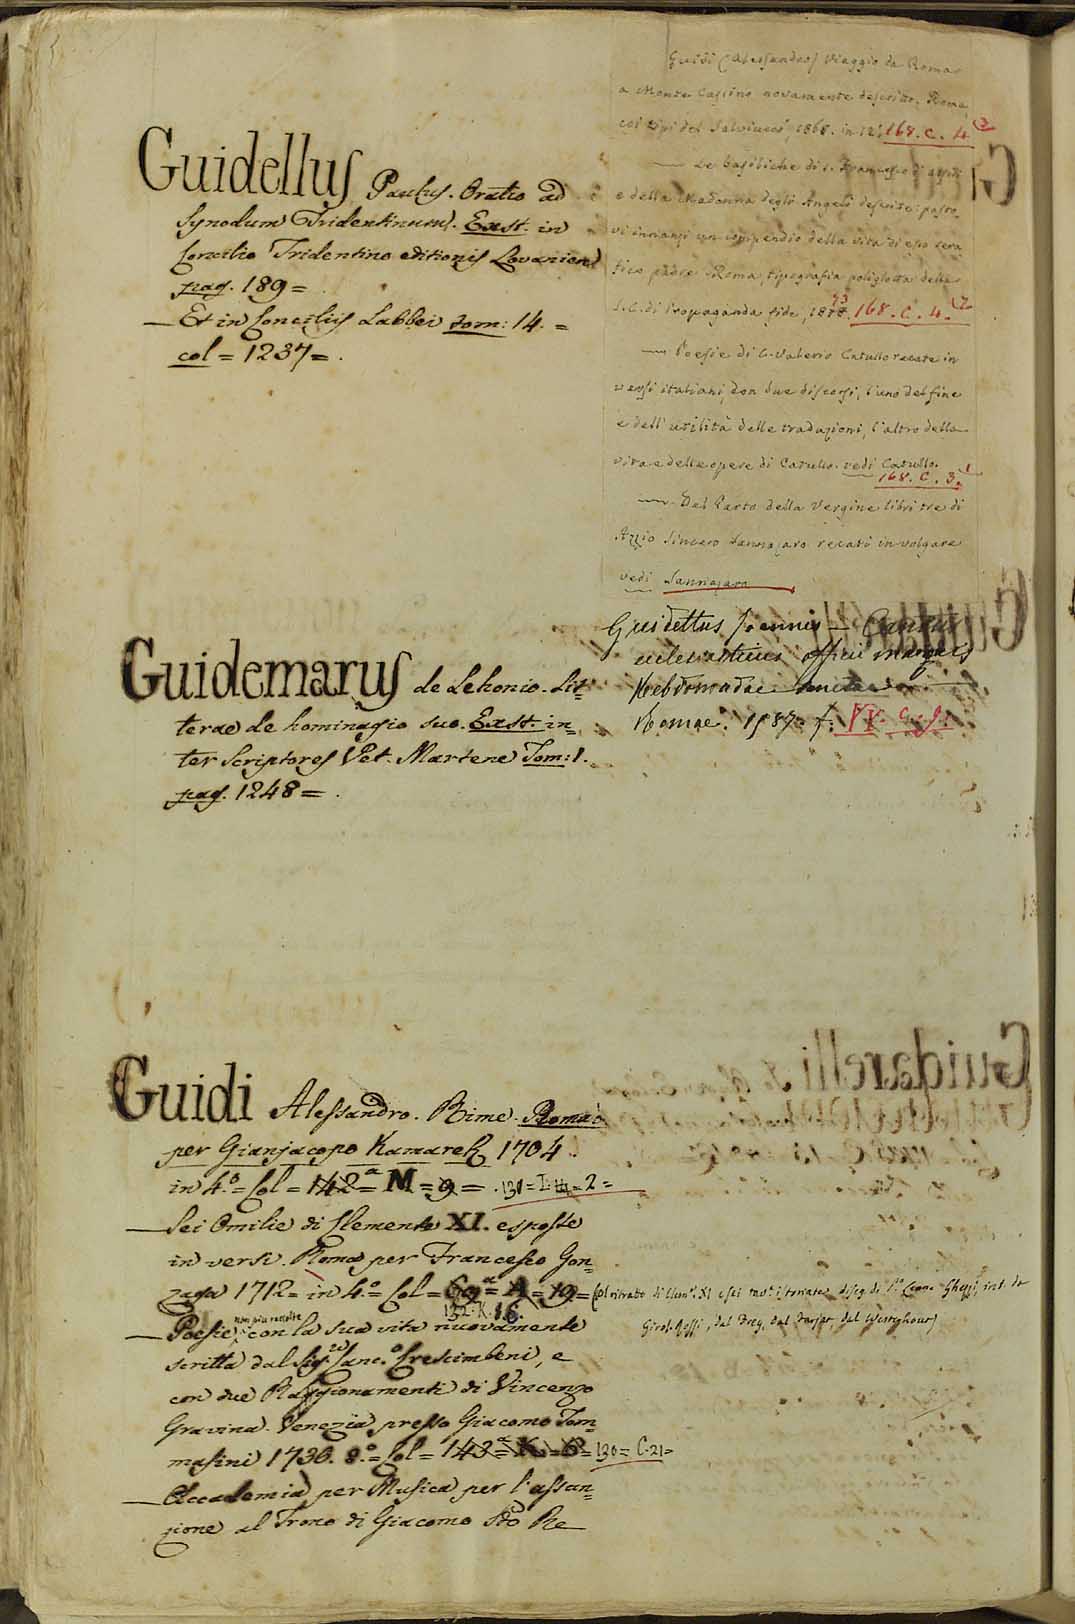 Guidellus Paulus. Oratio ad
Synodum Tridentinum. Exst. in
Concilio Tridentino editionis Lovanien
pag. 189 =
— Et in Conciliis Labbei tom: 14. =
col = 1237 = .
Guidemarus de Lehonio. Lit=
terae de hominagio suo. Exst. in=
ter Scriptores Vet. Martene Tom: 1.
pag. 1248 = .
Guidi Alessandro. Rime. Roma
per Gianjacopo Kamarek 1704
in 4.º = Col = 142ª = M = 9 = . 130 = I. = 2 =
— Sei Omilie di Clemente XI. esposte
in versi. Roma per Francesco Gon=
zaga 1712 = in 4.º = Col = 69ª = A = 19 = Col ritratto di Clem. XI e sei tav. istoriate diseg. di Leone Ghezzi, int. da
132. K. 16. Girol. Rossi, dal Frey, dal Farjat, dal Westerhout
— Poesie non più raccolte con la sua vita nuovamente
scritta dal Sig.re Canc.º Crescimbeni, e
con due Raggionamenti di Vincenzo
Gravina. Venezia presso Giacomo Tom=
masini 1730. 8.º = Col = 143ª = K = 6 = 130 = C. 21 =
— Accademia per Musica per l'assun=
zione al Trono di Giacomo 2do Re
Guidi (Alessandro) Viaggio da Roma
a Monte Cassino novamente descritto. Roma,
coi tipi del Salviucci, 1868. in 12. 168. C. 4 (3
— Le basiliche di S. Francesco d'Assisi
e della Madonna degli Angeli descritte: posto
vi innanzi un compendio della vita di esso sera
fico padre. Roma, tipografia poliglotta della
S. C. di Propaganda fide, 1873. 168. C. 4. (2
— Poesie di C. Valerio Catullo recate in
versi italiani, con due discorsi, l'uno del fine
e dell'utilità delle traduzioni, l'altro della
vita e delle opere di Catullo. vedi Catullo.
168. C. 3. 1
— Del Parto della Vergine libri tre di
Azzio Sincero Sannazaro recati in volgare
vedi Sannazaro
Guidettus Joannis — Cantus
ecclesiasticus officii majoris
Hebdomadae Sanctae
Romae. 1587. f. VV. G. 9.